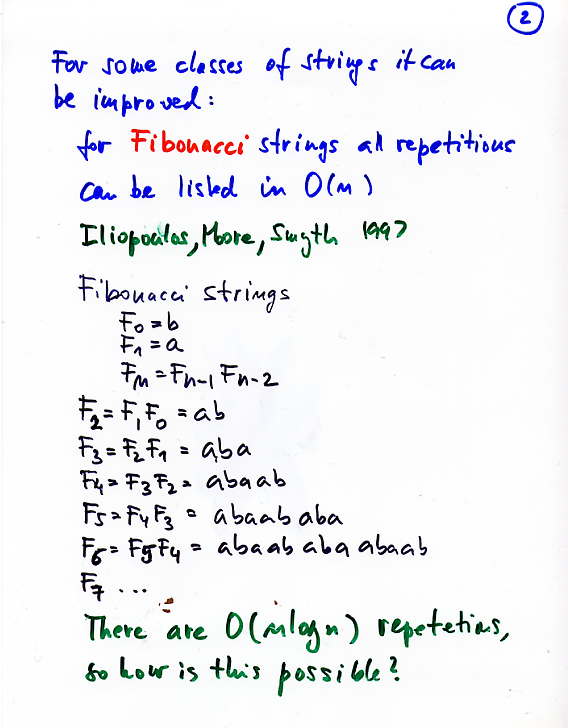 2
For some classes of strings it can
be improved:
for Fibonacci strings all repetitions
can be listed in O(n)
Iliopoulos, Moore, Smyth 1997
Fibonacci strings
F₀ = b
F₁ = a
Fₙ = Fₙ₋₁ Fₙ₋₂
F₂ = F₁ F₀ = ab
F₃ = F₂ F₁ = aba
F₄ = F₃ F₂ = abaab
F₅ = F₄ F₃ = abaab aba
F₆ = F₅ F₄ = abaab aba abaab
F₇ ...
There are O(n log n) repetetions,
so how is this possible?